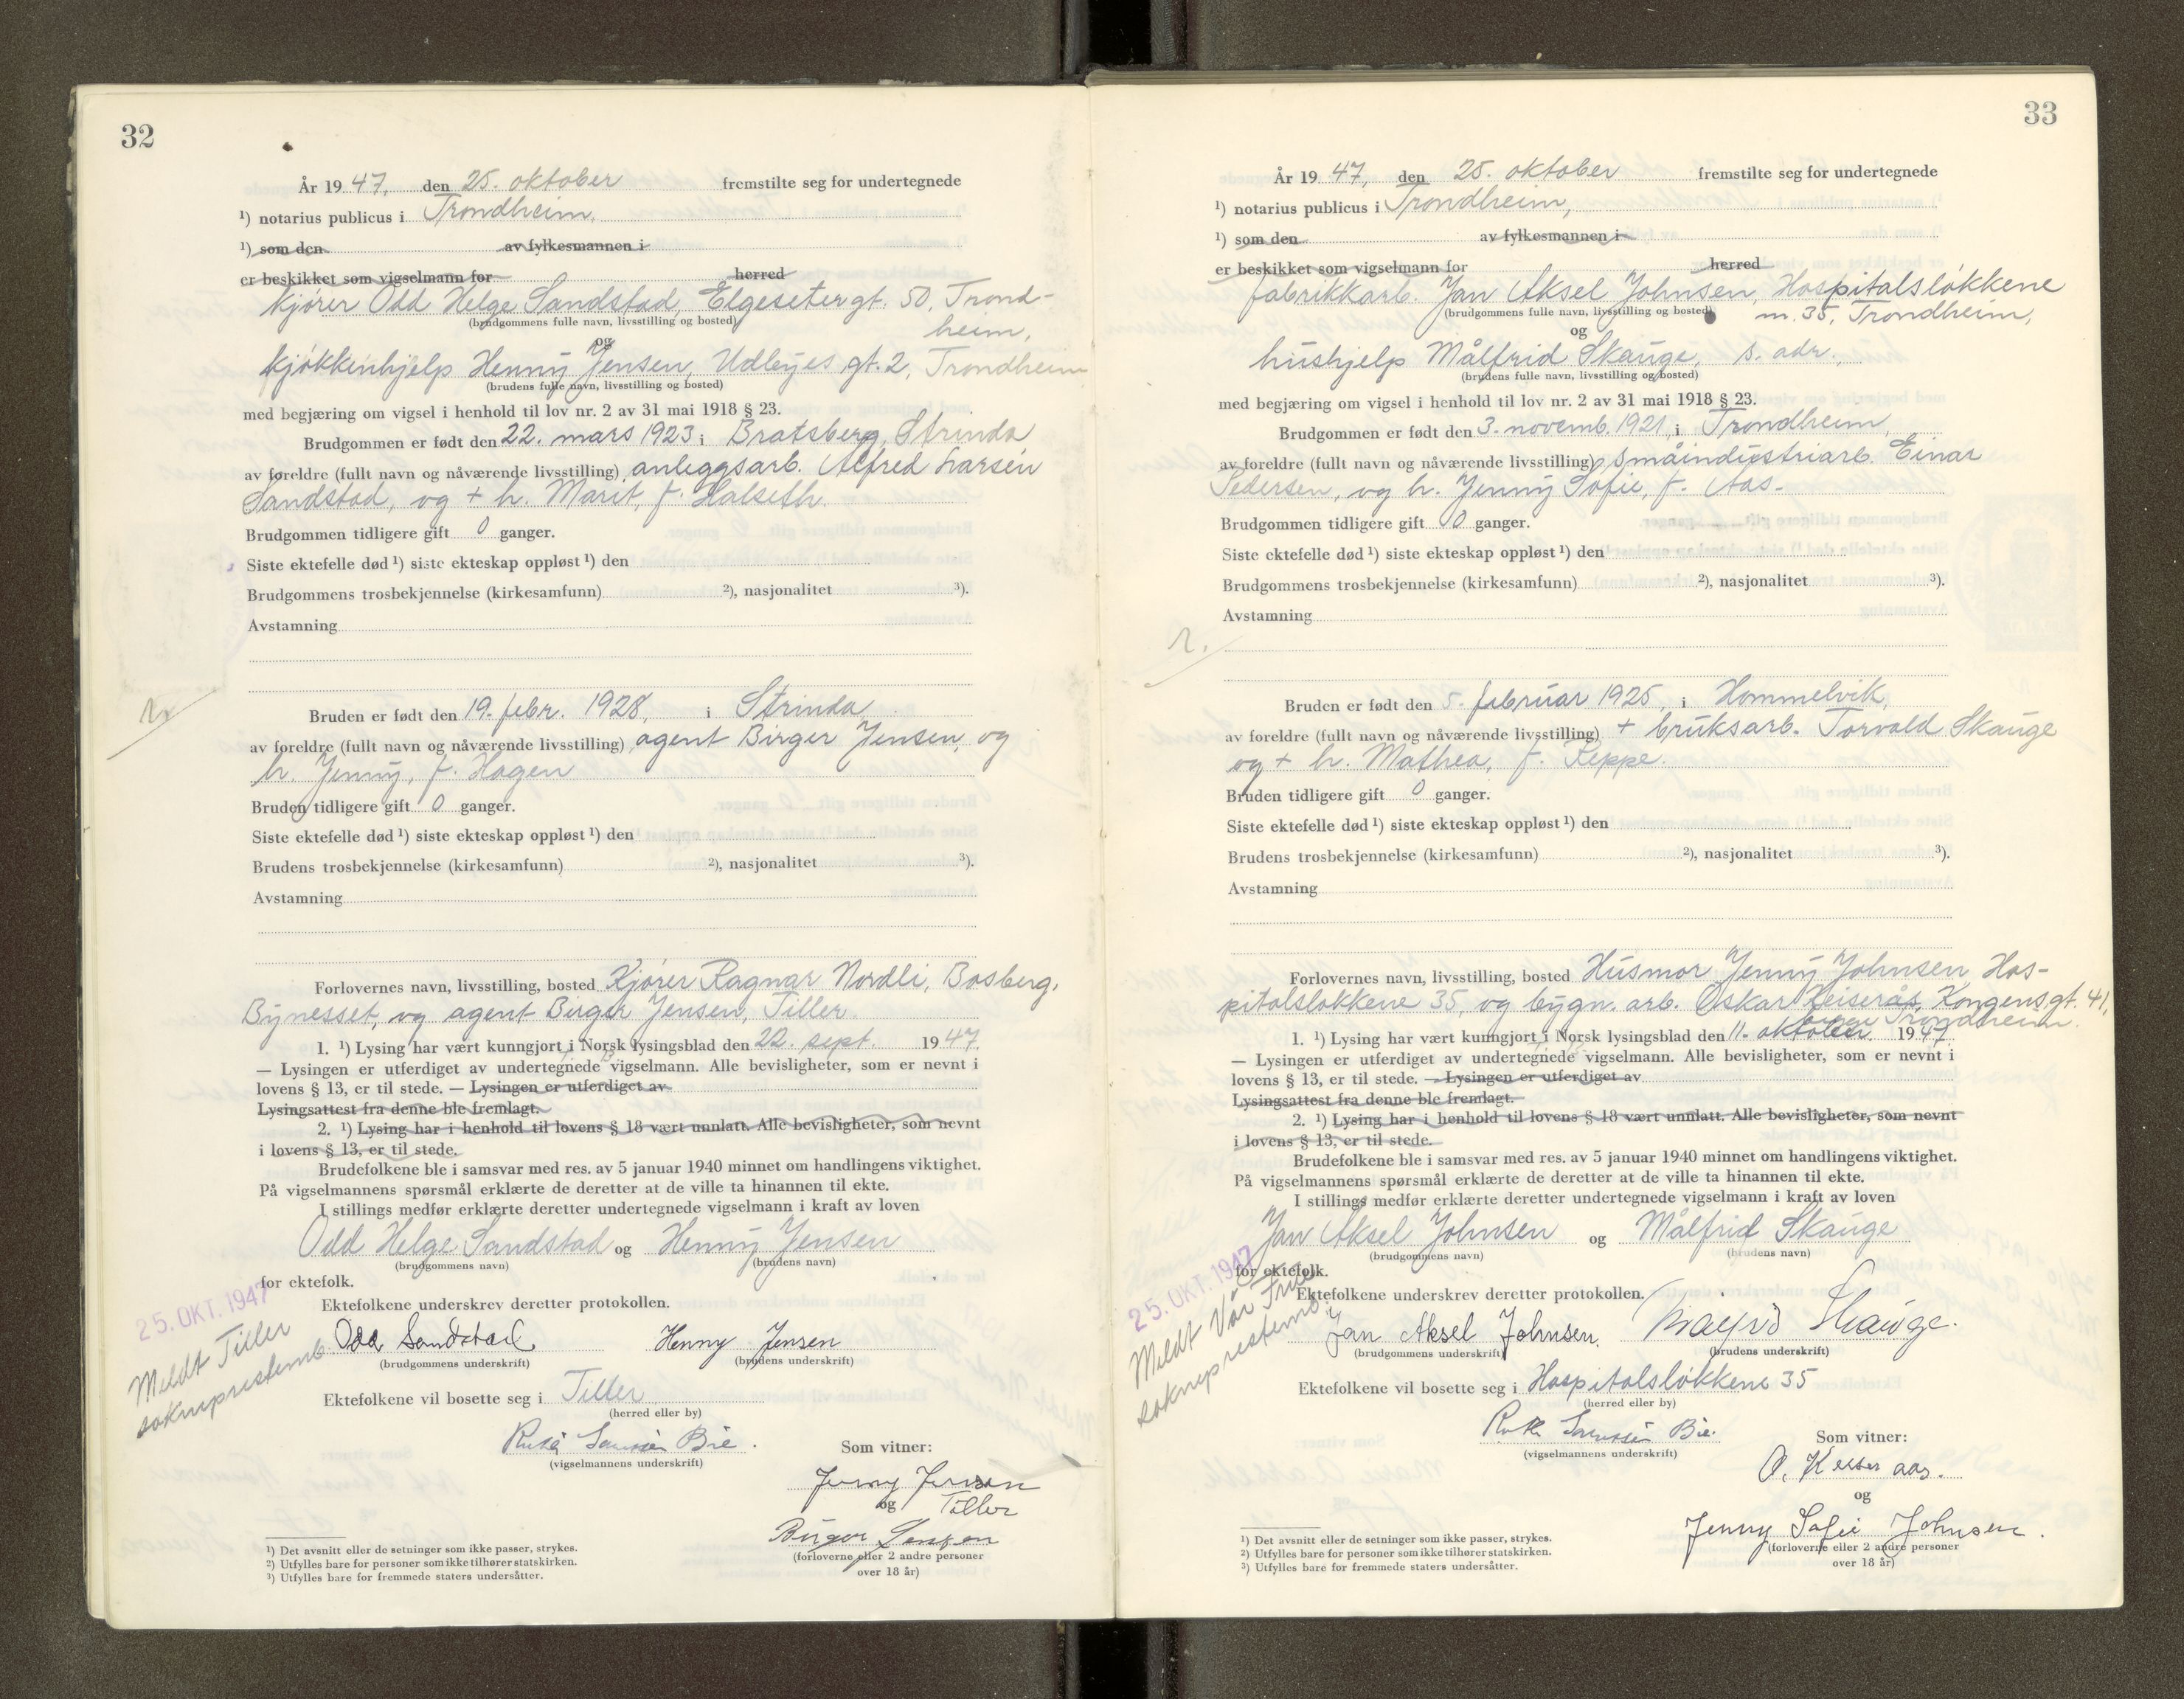 32
År 19 47, den 25. oktober fremstilte seg for undertegnede
¹) notarius publicus i Trondheim,
¹) som den av fylkesmannen i
er beskikket som vigselmann for herred
kjører Odd Helge Sandstad, Elgesetergt. 50, Trond-
(brudgommens fulle navn, livsstilling og bosted)
heim,
og
kjøkkenhjelp Henny Jensen, Udbyes gt. 2, Trondheim
(brudens fulle navn, livsstilling og bosted)
med begjæring om vigsel i henhold til lov nr. 2 av 31 mai 1918 § 23.
Brudgommen er født den 22. mars 1923 i Bratsberg, Strinda
av foreldre (fullt navn og nåværende livsstilling) anleggsarb. Alfred Larsen
Sandstad, og + h. Marit, f. Halseth.
Brudgommen tidligere gift 0 ganger.
Siste ektefelle død ¹) siste ekteskap oppløst ¹) den
Brudgommens trosbekjennelse (kirkesamfunn) ²), nasjonalitet ³).
Avstamning
Bruden er født den 19. febr. 1928, i Strinda
av foreldre (fullt navn og nåværende livsstilling) agent Birger Jensen, og
h. Jenny, f. Hagen
Bruden tidligere gift 0 ganger.
Siste ektefelle død ¹) siste ekteskap oppløst ¹) den
Brudens trosbekjennelse (kirkesamfunn) ²), nasjonalitet ³).
Avstamning
Forlovernes navn, livsstilling, bosted Kjører Ragnar Nordli, Bosberg,
Bynesset, og agent Birger Jensen, Tiller.
1. ¹) Lysing har vært kunngjort i Norsk lysingsblad den 22. sept. 19 47.
— Lysingen er utferdiget av undertegnede vigselmann. Alle bevisligheter, som er nevnt i
lovens § 13, er til stede. — Lysingen er utferdiget av
Lysingsattest fra denne ble fremlagt.
2. ¹) Lysing har i henhold til lovens § 18 vært unnlatt. Alle bevisligheter, som nevnt
i lovens § 13, er til stede.
Brudefolkene ble i samsvar med res. av 5 januar 1940 minnet om handlingens viktighet.
På vigselmannens spørsmål erklærte de deretter at de ville ta hinannen til ekte.
I stillings medfør erklærte deretter undertegnede vigselmann i kraft av loven
Odd Helge Sandstad og Henny Jensen
(brudgommens navn) (brudens navn)
for ektefolk.
25. OKT. 1947
Meldt Tiller
sokneprestemb.
Ektefolkene underskrev deretter protokollen.
Odd Sandstad Henny Jensen
(brudgommens underskrift) (brudens underskrift)
Ektefolkene vil bosette seg i Tiller
(herred eller by)
Bie.
(vigselmannens underskrift)
Som vitner:
Jenny Jensen
og Tiller
Birger Jensen
(forloverne eller 2 andre personer
over 18 år)
¹) Det avsnitt eller de setninger som ikke passer, strykes.
²) Utfylles bare for personer som ikke tilhører statskirken.
³) Utfylles bare for fremmede staters undersåtter.
33
År 19 47, den 25. oktober fremstilte seg for undertegnede
¹) notarius publicus i Trondheim,
¹) som den av fylkesmannen i
er beskikket som vigselmann for herred
fabrikkarb. Jan Aksel Johnsen, Hospitalsløkkene
(brudgommens fulle navn, livsstilling og bosted)
nr. 35, Trondheim,
og
hushjelp Målfrid Skauge, s. adr.,
(brudens fulle navn, livsstilling og bosted)
med begjæring om vigsel i henhold til lov nr. 2 av 31 mai 1918 § 23.
Brudgommen er født den 3. novemb. 1921, i Trondheim,
av foreldre (fullt navn og nåværende livsstilling) småindustriarb. Einar
Pedersen, og h. Jenny Sofie, f. Aas.
Brudgommen tidligere gift 0 ganger.
Siste ektefelle død ¹) siste ekteskap oppløst ¹) den
Brudgommens trosbekjennelse (kirkesamfunn) ²), nasjonalitet ³).
Avstamning
Bruden er født den 5. februar 1925, i Hommelvik,
av foreldre (fullt navn og nåværende livsstilling) + bruksarb. Torvald Skauge
og + h. Mathea, f. Reppe.
Bruden tidligere gift 0 ganger.
Siste ektefelle død ¹) siste ekteskap oppløst ¹) den
Brudens trosbekjennelse (kirkesamfunn) ²), nasjonalitet ³).
Avstamning
Forlovernes navn, livsstilling, bosted Husmor Jenny Johnsen, Hos-
pitalsløkkene 35, og bygn. arb. Oskar Keiserås, Kongensgt. 41,
Trondheim.
1. ¹) Lysing har vært kunngjort i Norsk lysingsblad den 11. oktober 19 47
— Lysingen er utferdiget av undertegnede vigselmann. Alle bevisligheter, som er nevnt i
lovens § 13, er til stede. — Lysingen er utferdiget av
Lysingsattest fra denne ble fremlagt.
2. ¹) Lysing har i henhold til lovens § 18 vært unnlatt. Alle bevisligheter, som nevnt
i lovens § 13, er til stede.
Brudefolkene ble i samsvar med res. av 5 januar 1940 minnet om handlingens viktighet.
På vigselmannens spørsmål erklærte de deretter at de ville ta hinannen til ekte.
I stillings medfør erklærte deretter undertegnede vigselmann i kraft av loven
Jan Aksel Johnsen og Målfrid Skauge
(brudgommens navn) (brudens navn)
for ektefolk.
25. OKT. 1947
Meldt Vår Frue
sokneprestemb.
Ektefolkene underskrev deretter protokollen.
Jan Aksel Johnsen. Målfrid Skauge.
(brudgommens underskrift) (brudens underskrift)
Ektefolkene vil bosette seg i Hospitalsløkkene 35
(herred eller by)
Bie.
(vigselmannens underskrift)
Som vitner:
O. Keiser aas.
og
Jenny Sofie Johnsen.
(forloverne eller 2 andre personer
over 18 år)
¹) Det avsnitt eller de setninger som ikke passer, strykes.
²) Utfylles bare for personer som ikke tilhører statskirken.
³) Utfylles bare for fremmede staters undersåtter.